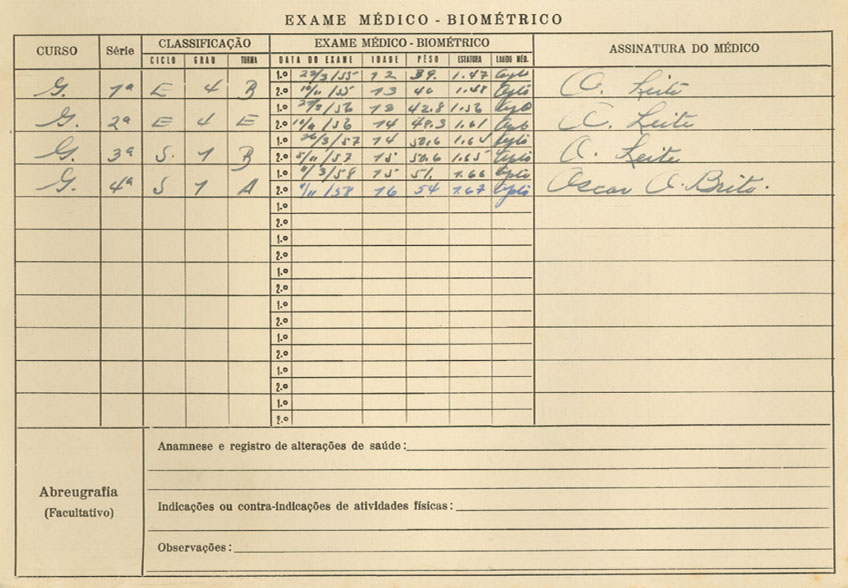 EXAME MÉDICO - BIOMÉTRICO
CURSO Série CLASSIFICAÇÃO EXAME MÉDICO - BIOMÉTRICO ASSINATURA DO MÉDICO
CICLO GRAU TURMA DATA DO EXAME IDADE PÊSO ESTATURA LAUDO MÉD.
1.º /3/55 12 39. 1.47 Apto
G. 1ª E 4 B 2.º 10/11/55 13 40 1.48 Apto O. Leite
1.º /56 13 42.8 1.56 Apto
G. 2ª E 4 E 2.º /56 14 48.3 1.61 Apto O. Leite
1.º /3/57 14 50.6 Apto
G. 3ª S. 1 B 2.º 5/11/57 15 50.6 1.65 Apto O. Leite
1.º /3/58 15 51. 1.66 Apto
G. 4ª S 1 A 2.º /11/58 16 54 1.67 Apto Oscar O. Brito.
1.º
2.º
1.º
2.º
1.º
2.º
1.º
2.º
1.º
2.º
1.º
2.º
1.º
2.º
Abreugrafia
(Facultativo)
Anamnese e registro de alterações de saúde:
Indicações ou contra-indicações de atividades físicas:
Observações: